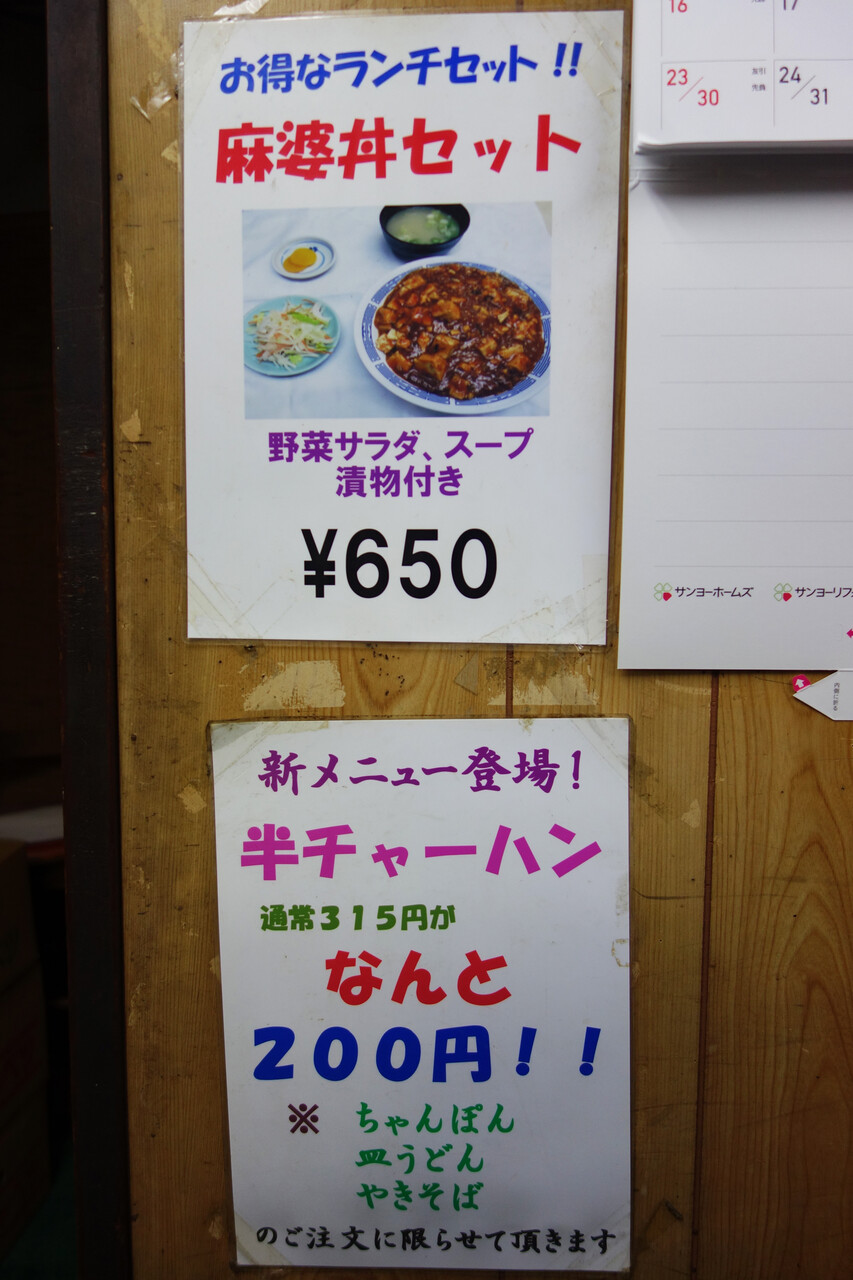 お得なランチセット!!
麻婆丼セット
野菜サラダ、スープ
漬物付き
¥650
新メニュー登場!
半チャーハン
通常315円が
なんと
200円!!
※ ちゃんぽん
皿うどん
やきそば
のご注文に限らせて頂きます
16 17
23/30 友引 先負 24/31
サンヨーホームズ サンヨーリフ
内側に折る